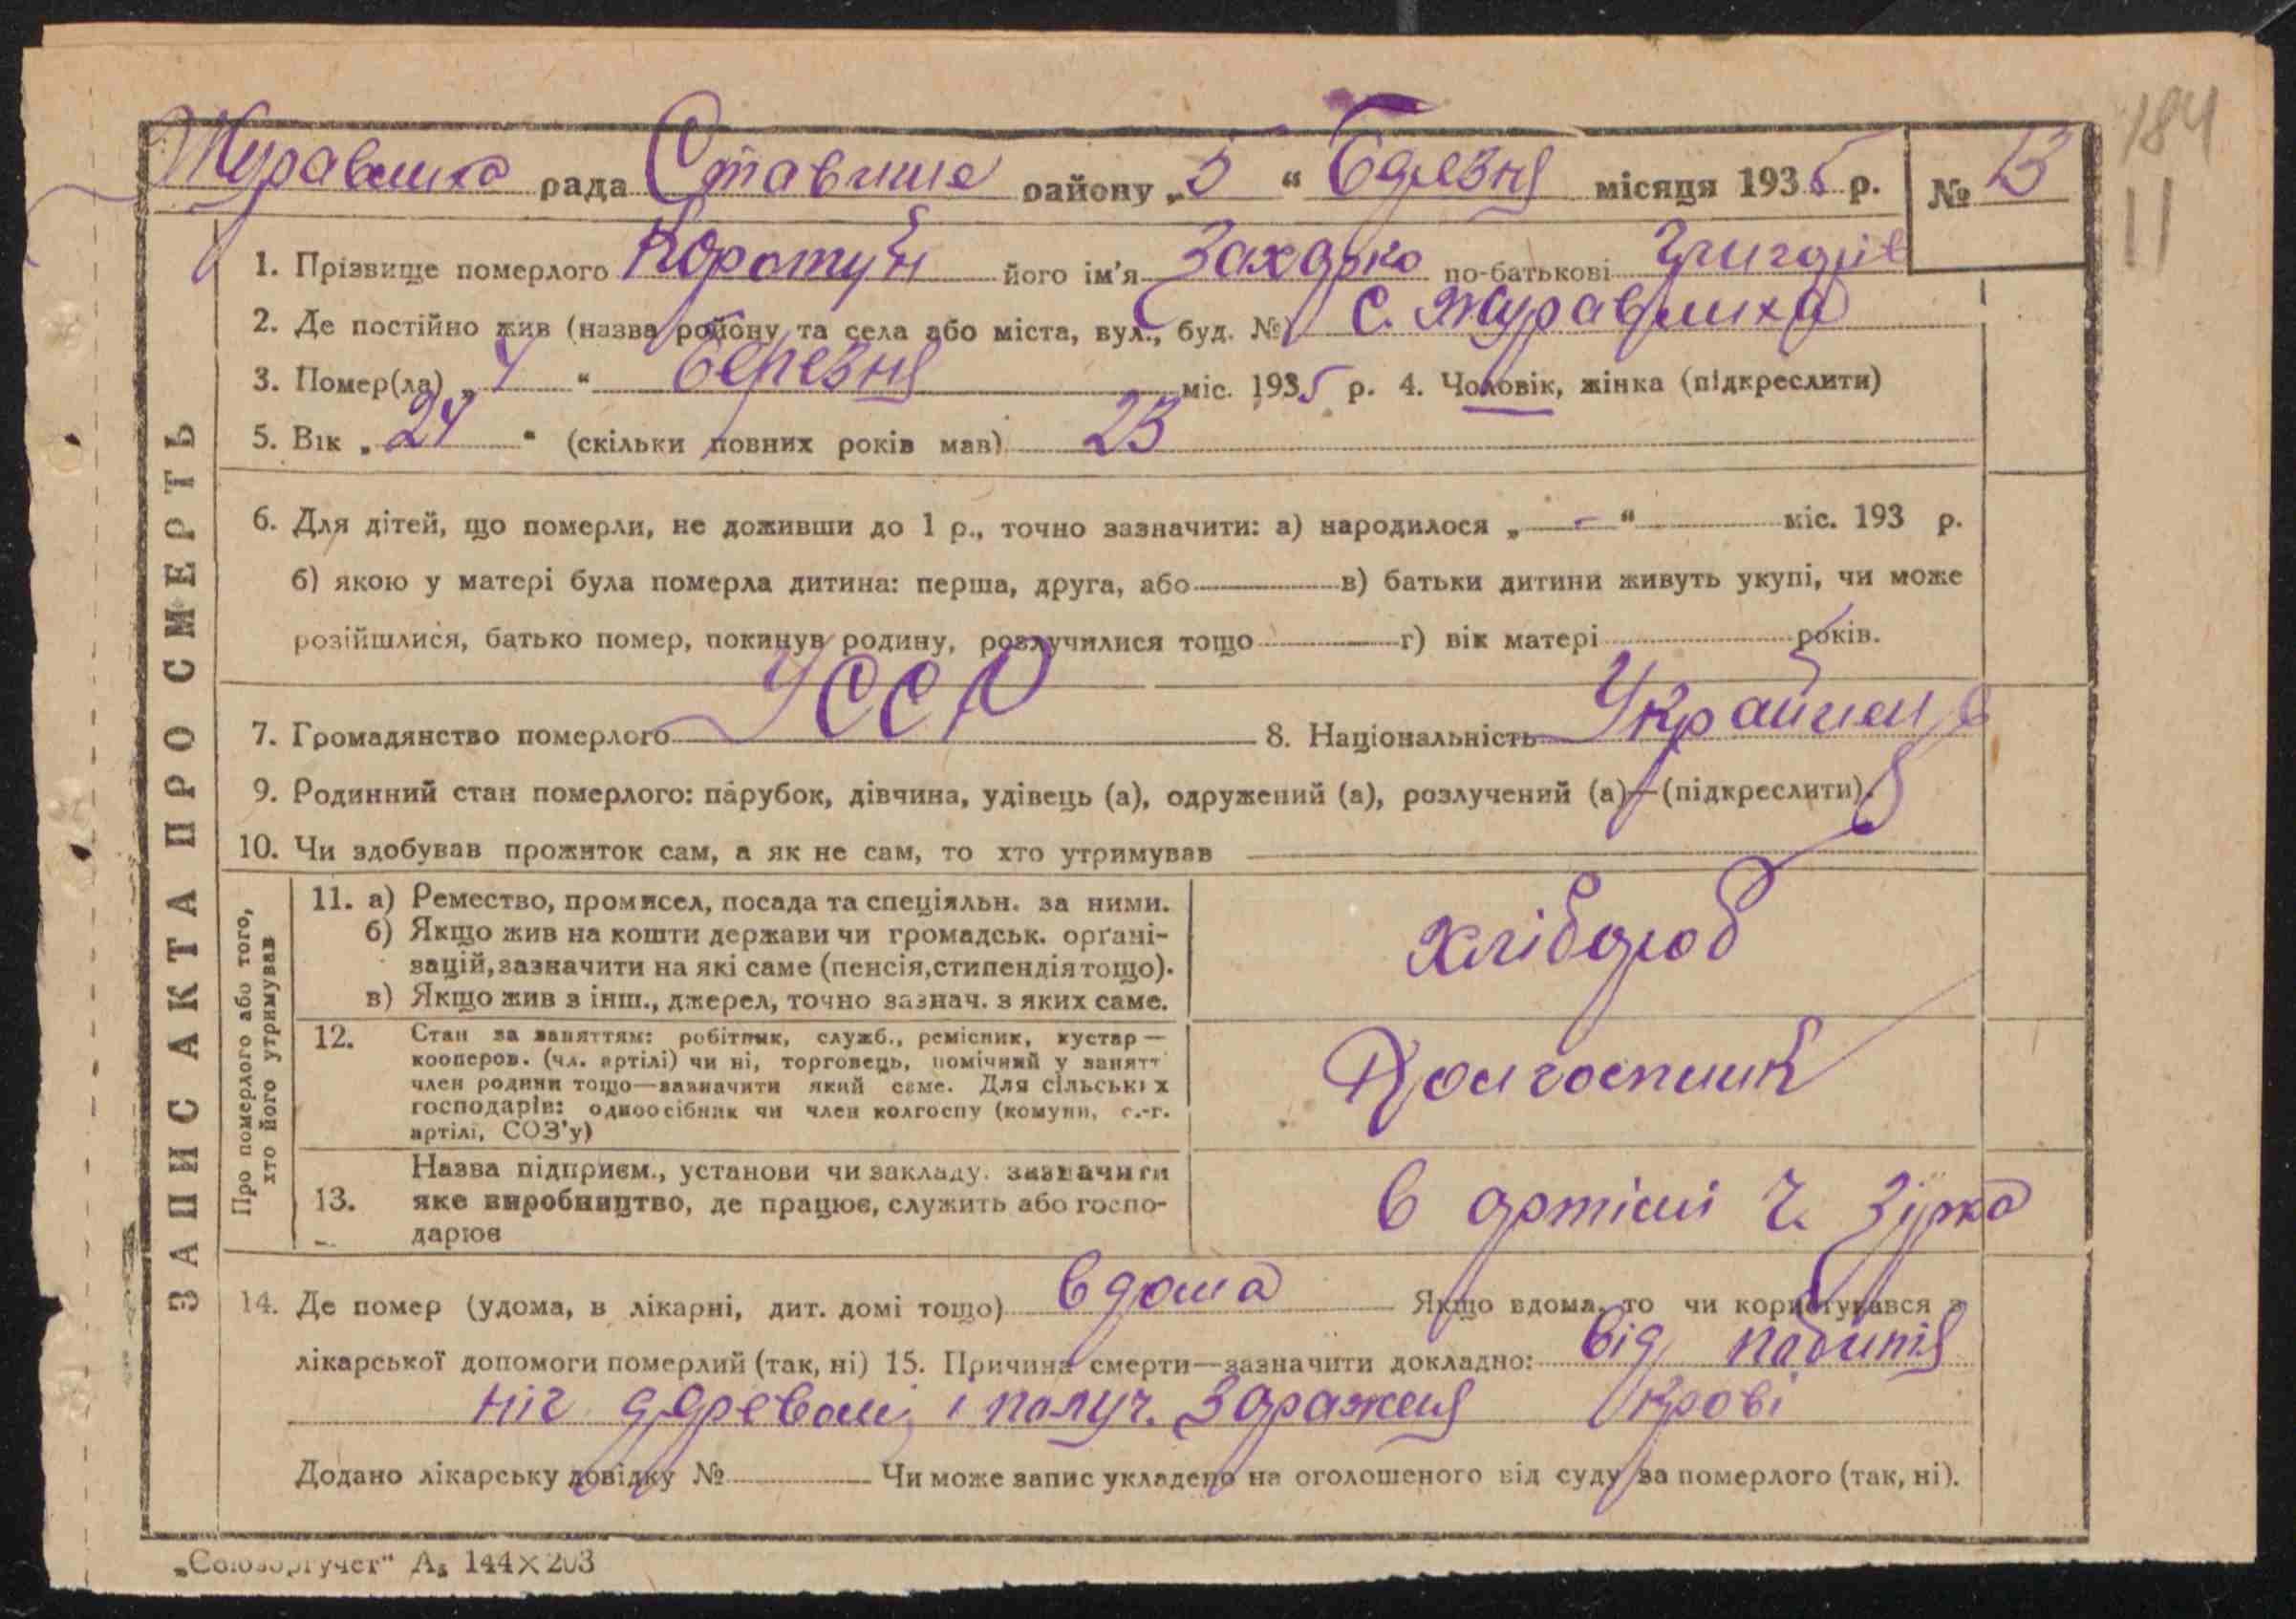 Журавлиха рада Ставище району „5“ Березня місяця 1935 р. № 13
184
11
1. Прізвище померлого Коротун його ім'я Захарко по-батькові Григорів
2. Де постійно жив (назва району та села або міста, вул., буд. №) с. Журавлиха
3. Помер(ла) „4“ березня міс. 1935 р. 4. Чоловік, жінка (підкреслити)
5. Вік „24“ (скільки повних років мав) 23
6. Для дітей, що померли, не доживши до 1 р., точно зазначити: а) народилося „-“ міс. 193 р.
б) якою у матері була померла дитина: перша, друга, або в) батьки дитини живуть укупі, чи може
розійшлися, батько помер, покинув родину, розлучилися тощо г) вік матері років.
7. Громадянство померлого УССР 8. Національність Украйнец
9. Родинний стан померлого: парубок, дівчина, удівець (а), одружений (а), розлучений (а)—(підкреслити).
10. Чи здобував прожиток сам, а як не сам, то хто утримував
ЗАПИС АКТА ПРО СМЕРТЬ
Про померлого або того, хто його утримував
11. а) Ремество, промисел, посада та спеціяльн. за ними.
б) Якщо жив на кошти держави чи громадськ. органі-
зацій, зазначити на які саме (пенсія, стипендія тощо).
в) Якщо жив з інш., джерел, точно зазнач. з яких саме.
хлібороб
12. Стан за заняттям: робітник, служб., ремісник, кустар—
кооперов. (чл. артілі) чи ні, торговець, помічний у занятт
член родини тощо—зазначити який саме. Для сільських
господарів: одноосібник чи член колгоспу (комуни, с.-г.
артілі, СОЗ'у)
Колгоспник
13. Назва підприєм., установи чи закладу. зазначити
яке виробництво, де працює, служить або госпо-
дарює
в артілі Ч. Зірка
14. Де помер (удома, в лікарні, дит. домі тощо) вдома Якщо вдома, то чи користувався з
лікарської допомоги померлий (так, ні) 15. Причина смерти—зазначити докладно: від побитія
ніг деревом і получ. Зараженя крові
Додано лікарську довідку № Чи може запис укладено на оголошеного від суду за померлого (так, ні).
„Союзоргучет“ А₅ 144×203